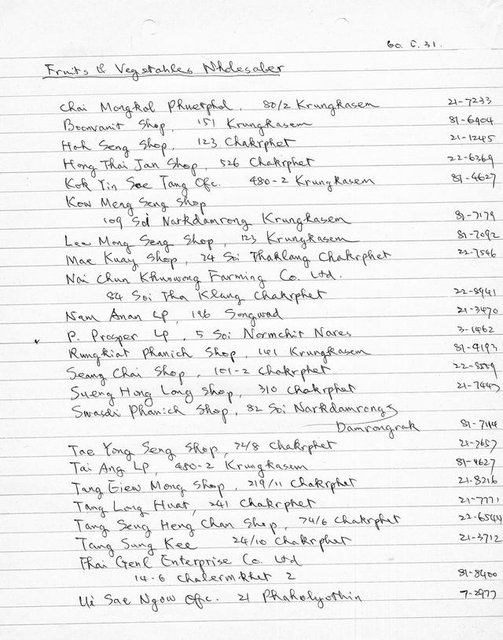 Fruits & Vegetables Wholesaler
Chai Mongkol Phuetphol, 80/2 Krungkasem 21-7233
Boonvanit Shop, 151 Krungkasem 81-6904
Hoh Seng Shop, 123 Chakrphet 21-1245
Hong Thai Jan Shop, 526 Chakrphet 22-6369
Kok Yin See Tang Ofc. 480-2 Krungkasem 81-4627
Kow Meng Seng Shop
109 Soi Narkdamrong Krungkasem 81-7179
Lee Mong Seng Shop, 123 Krungkasem 81-7092
Mae Kuay Shop, 24 Soi Thaklang Chakrphet 22-7546
Nai Chun Khuswong Farming Co. Ltd.
84 Soi Tha Klang Chakrphet 22-8941
Nam Anan LP, 196 Songwad 21-3470
P. Prosper LP 5 Soi Normchit Nares 3-1462
Rungkiat Phanich Shop, 191 Krungkasem 81-4193
Seang Chai Shop, 101-2 Chakrphet
Sueng Hong Long Shop, 310 Chakrphet
Swasdi Phanich Shop, 82 Soi Narkdamrong
Damrongrak 81-7144
Tae Yong Seng Shop, 74/8 Chakrphet 21-7657
Tai Ang LP, 480-2 Krungkasem 81-4627
Tang Eiew Mong Shop, 219/11 Chakrphet 21-8216
Tang Long Huat, 241 Chakrphet 21-7771
Tang Seng Heng Chan Shop, 74/6 Chakrphet 22-6544
Tang Sung Kee 24/10 Chakrphet 21-3712
Thai Genl Enterprise Co. Ltd
14-6 Chalermkhet 2 81-8400
Ui Sae Ngow Ofc. 21 Phaholyothin 7-2977